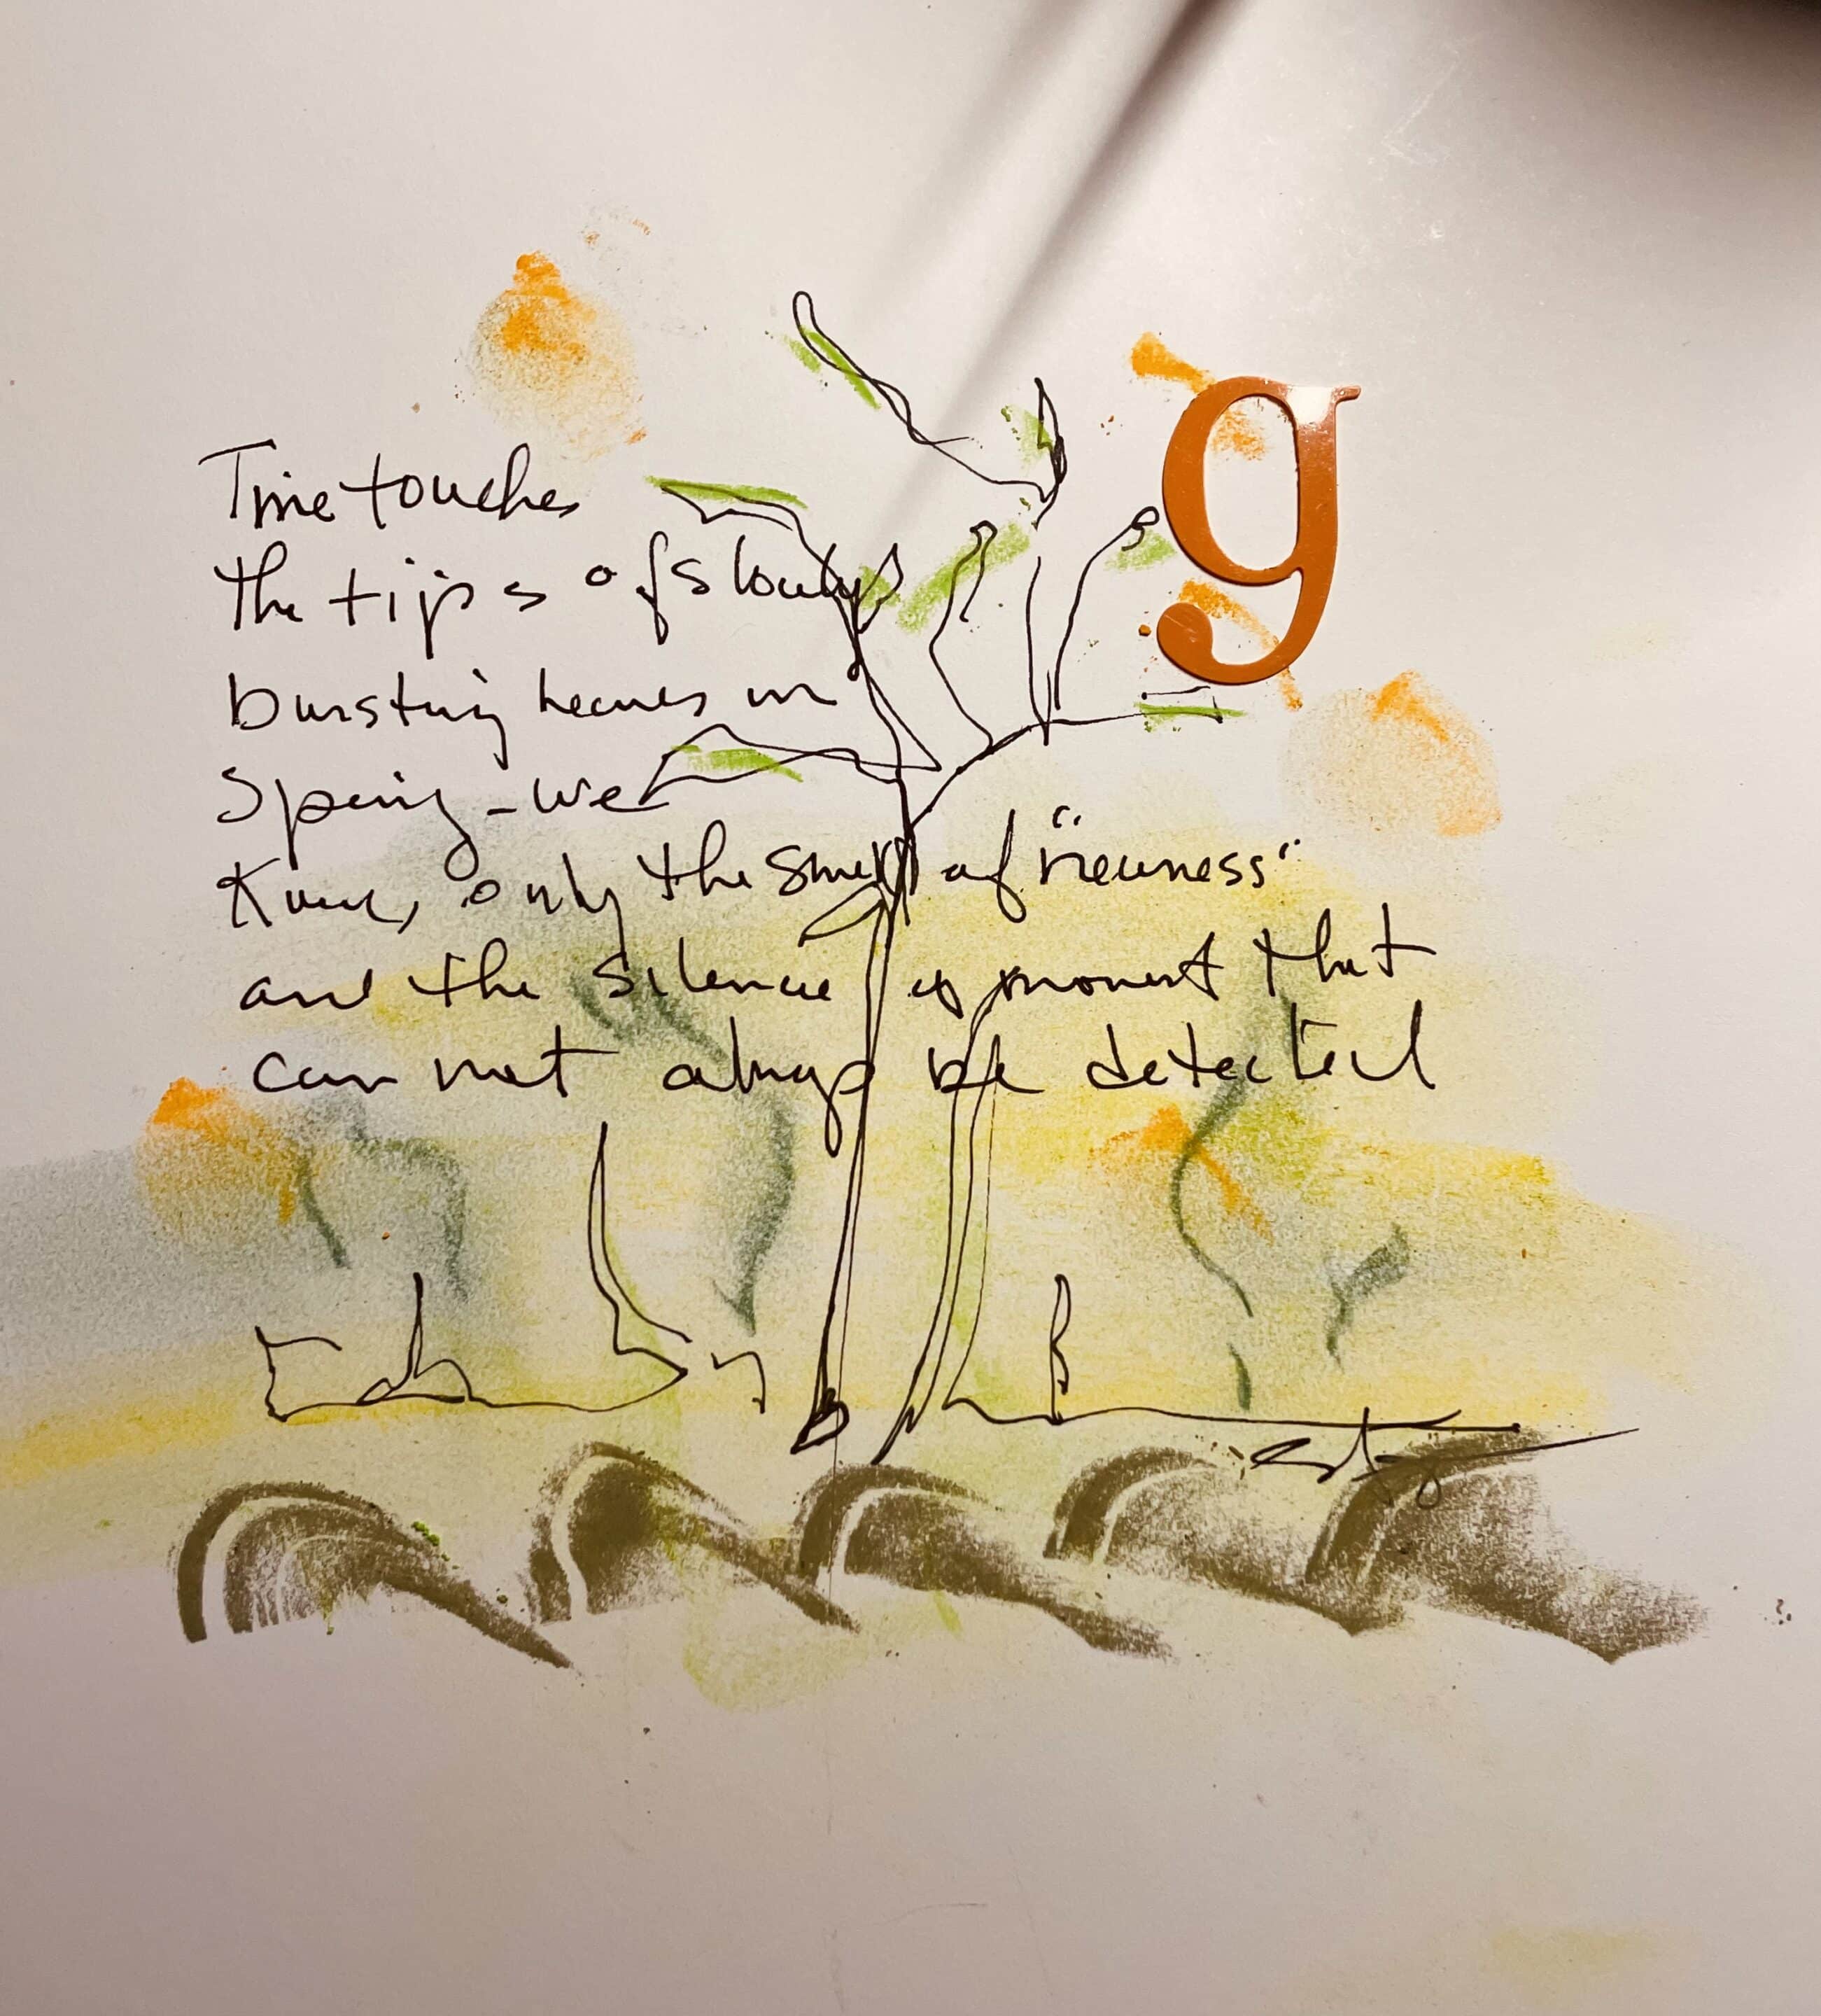 Time touches
g
the tips of slowly
bursting leaves in
Spring - we
Know, only the smell of "newness"
and the silence of moment that
can not always be detected